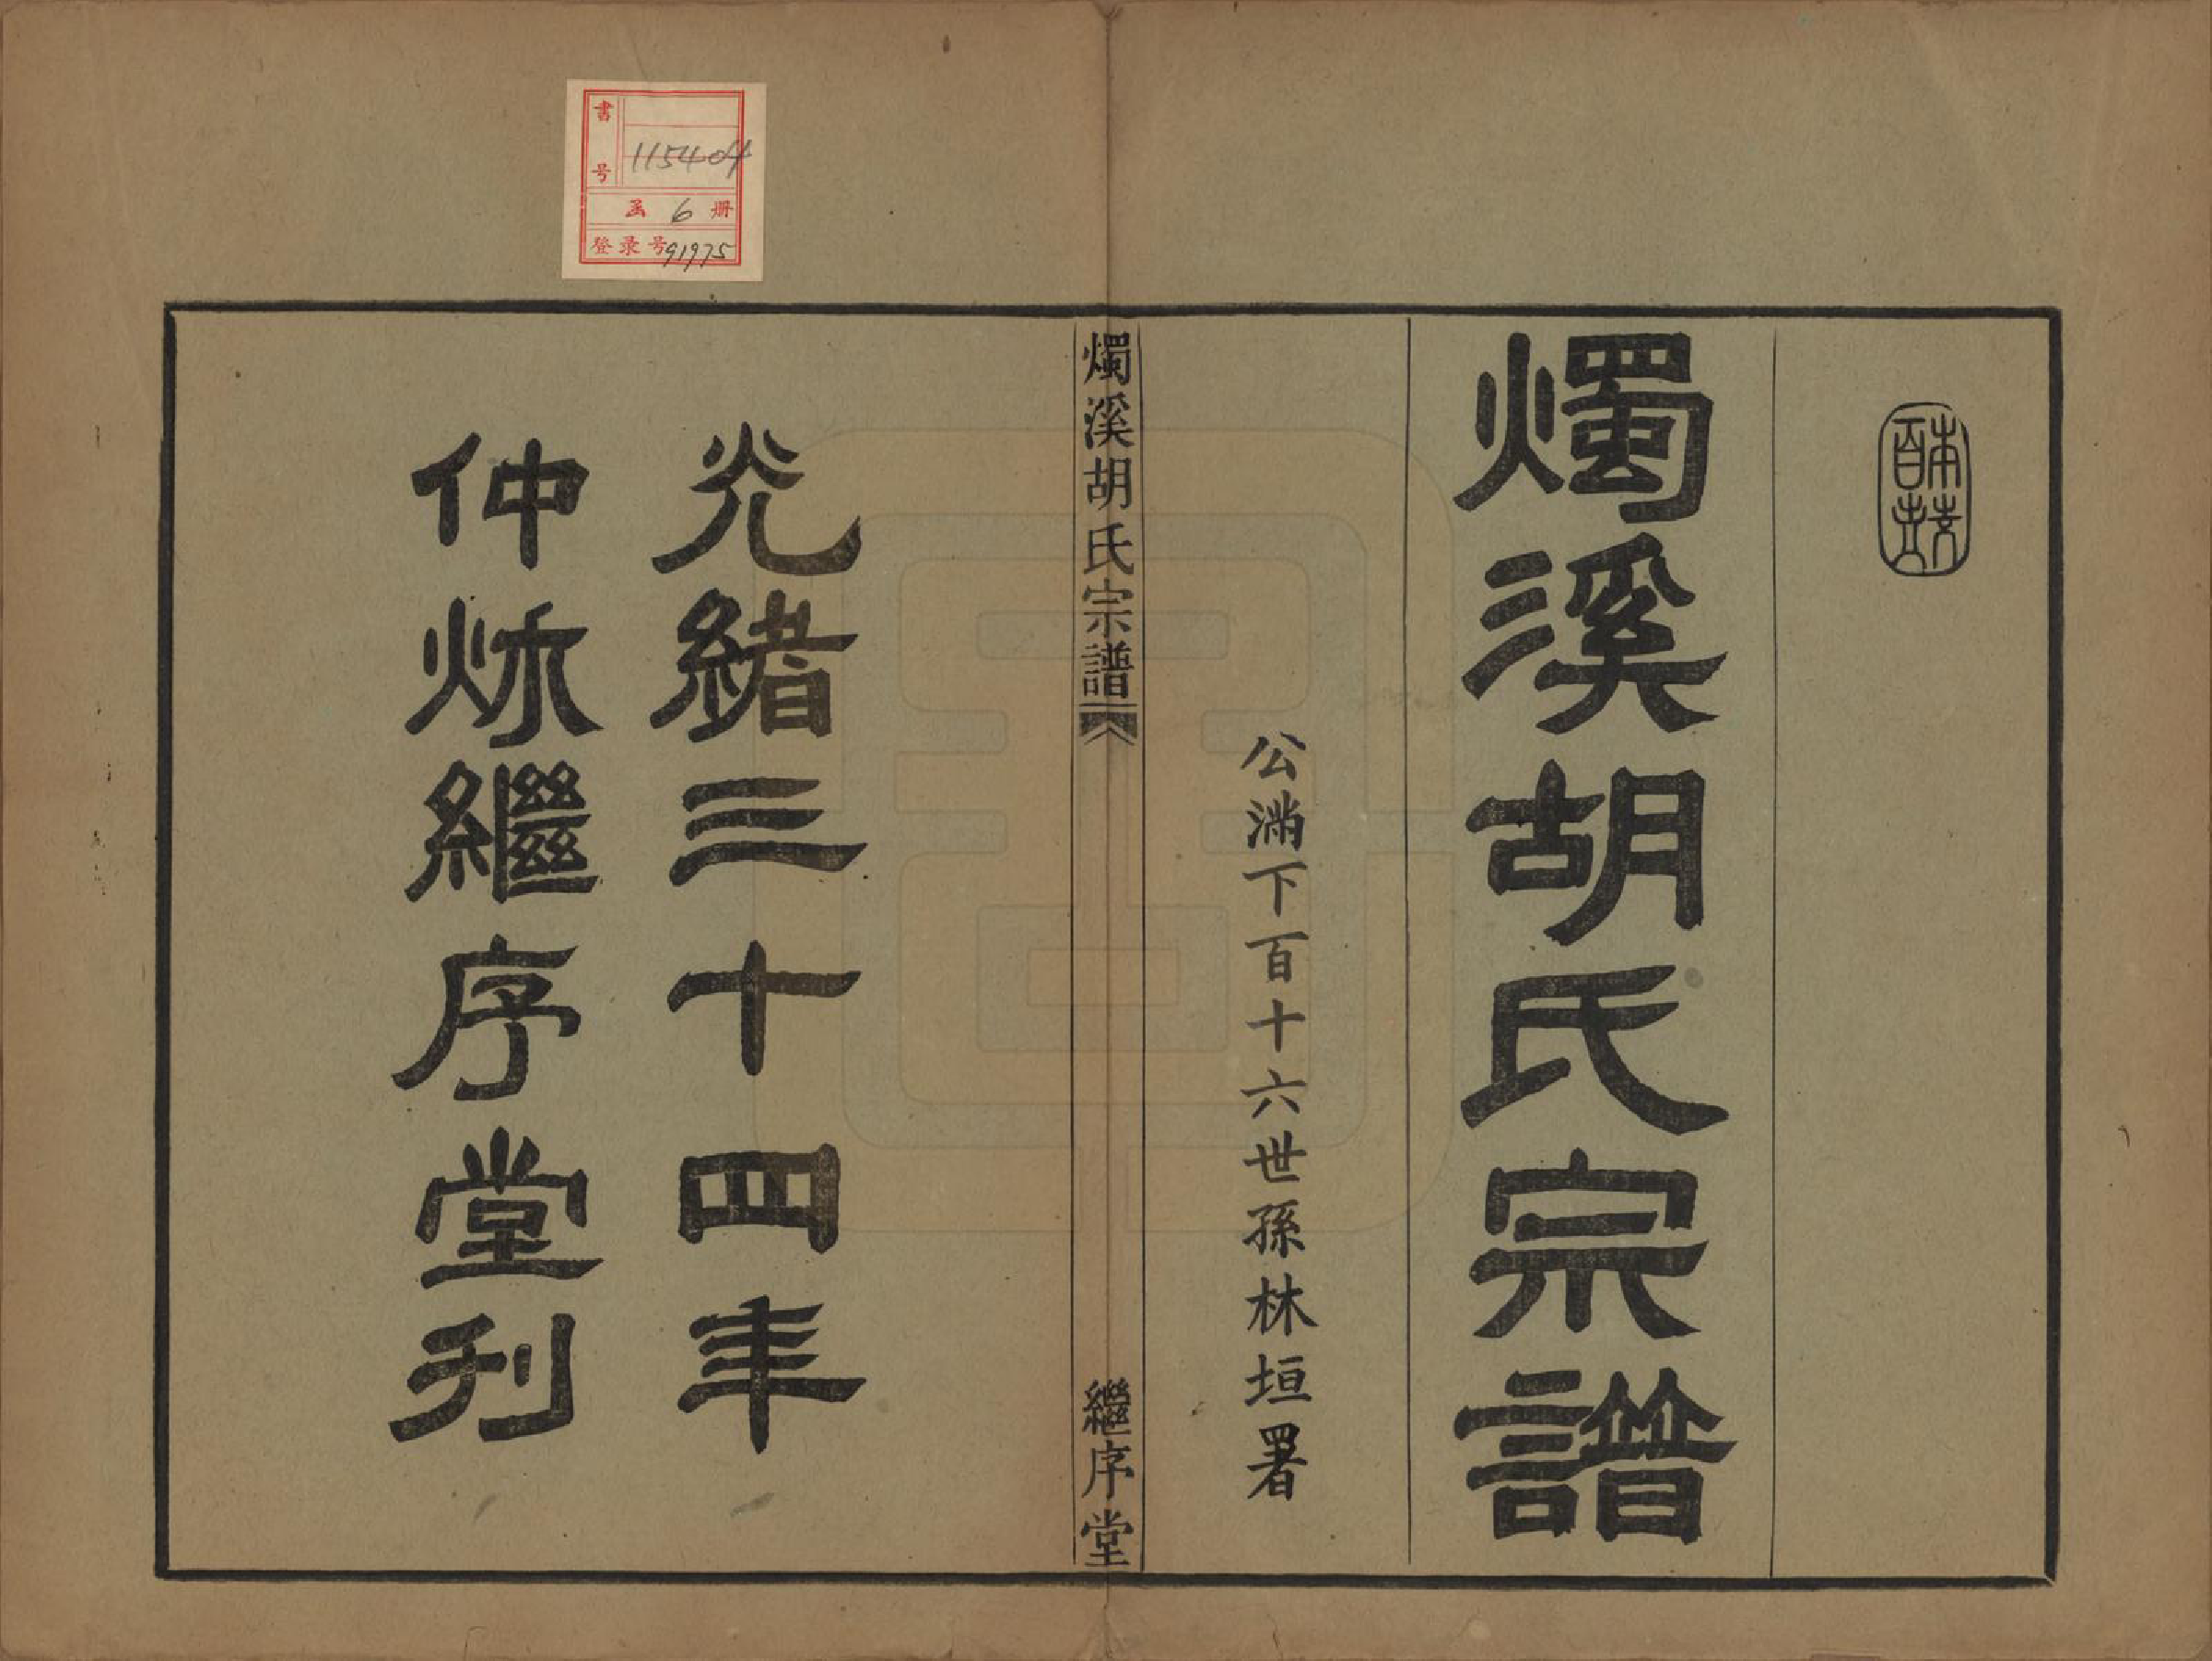 本支百世
燭溪胡氏宗譜
公滿下百十六世孫林垣署
燭溪胡氏宗譜
繼序堂
光緒三十四年
仲秌繼序堂刊
書号 115404
函 6 册
登录号 91975